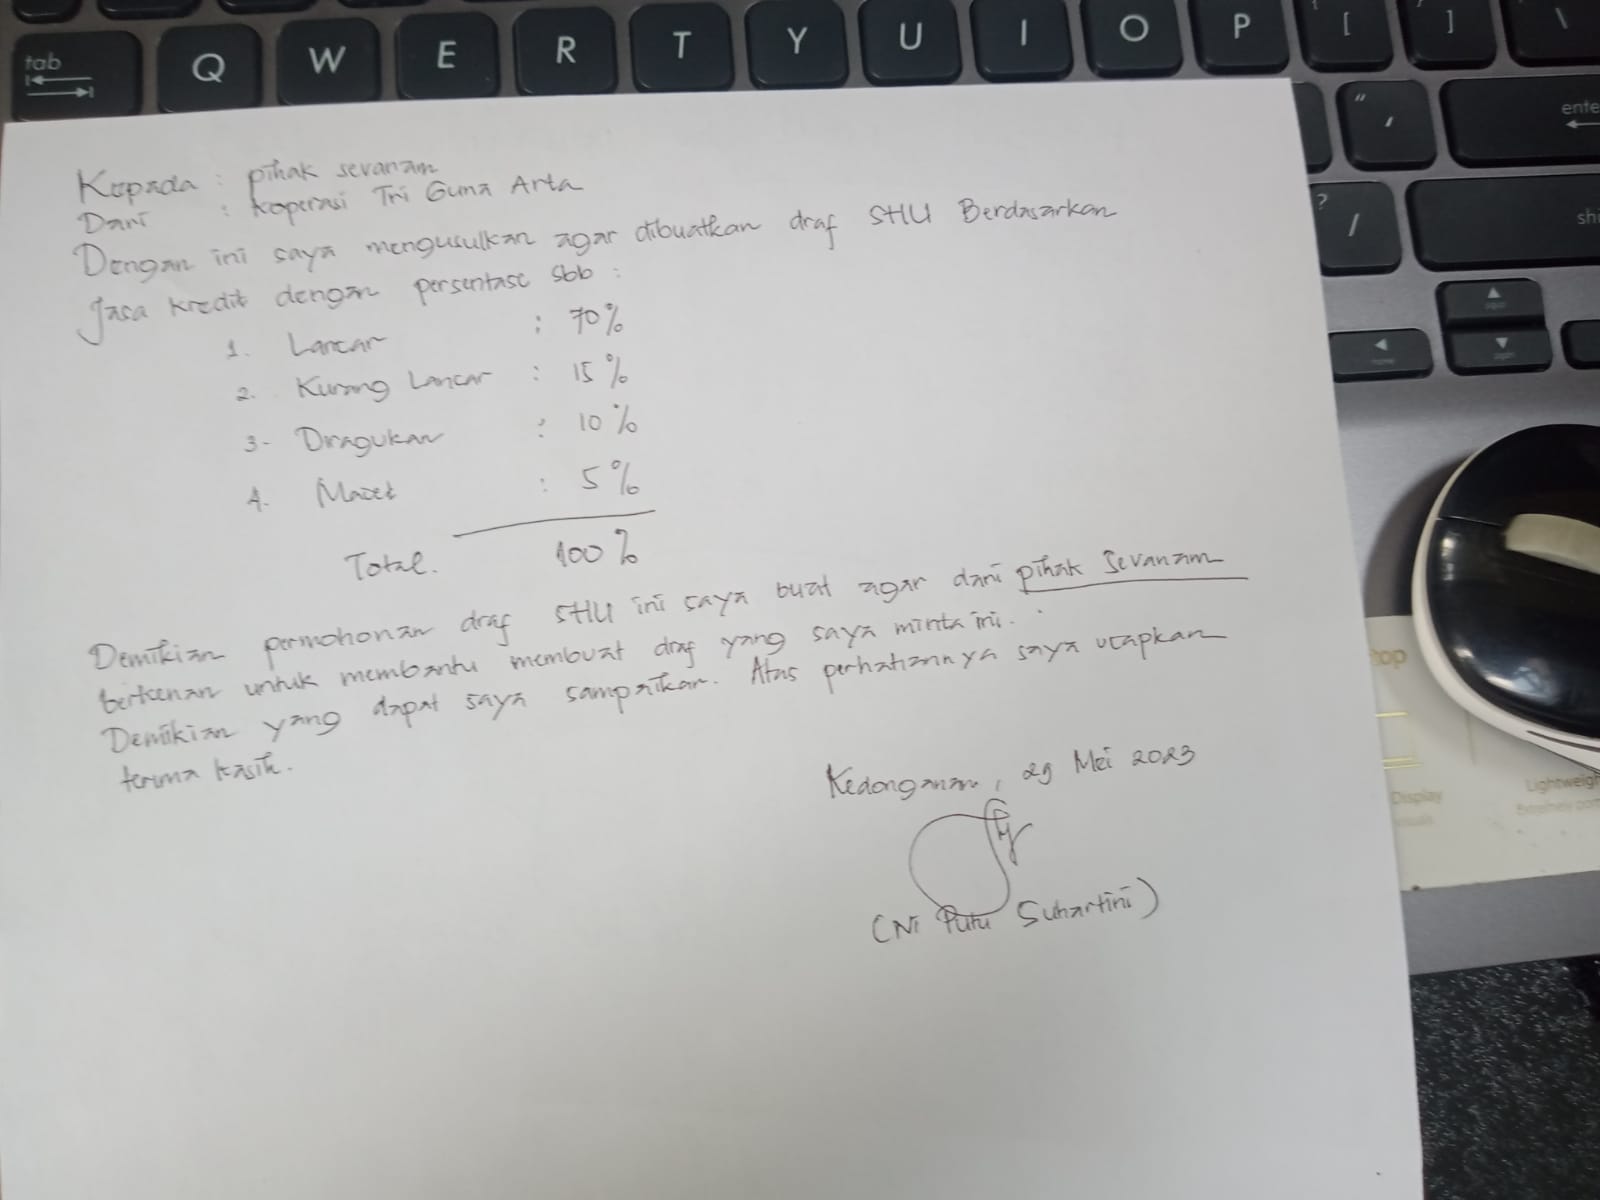 tab
Q W E R T Y U I O P [ ] \
" ,
enter
? /
shi
Kepada : pihak sevanam
Dari : Koperasi Tri Guna Arta
Dengan ini saya mengusulkan agar dibuatkan draf SHU Berdasarkan
Jasa Kredit dengan persentase sbb :
1. Lancar : 70%
2. Kurang Lancar : 15%
3- Diragukan : 10%
4. Macet : 5%
Total. 100%
Demikian permohonan draf SHU ini saya buat agar dari pihak Sevanam
berkenan untuk membantu membuat draf yang saya minta ini.
Demikian yang dapat saya sampaikan. Atas perhatiannya saya ucapkan
terima kasih.
Kedonganan, 29 Mei 2023
(Ni Putu Suhartini)
top
Display
Lightweigh